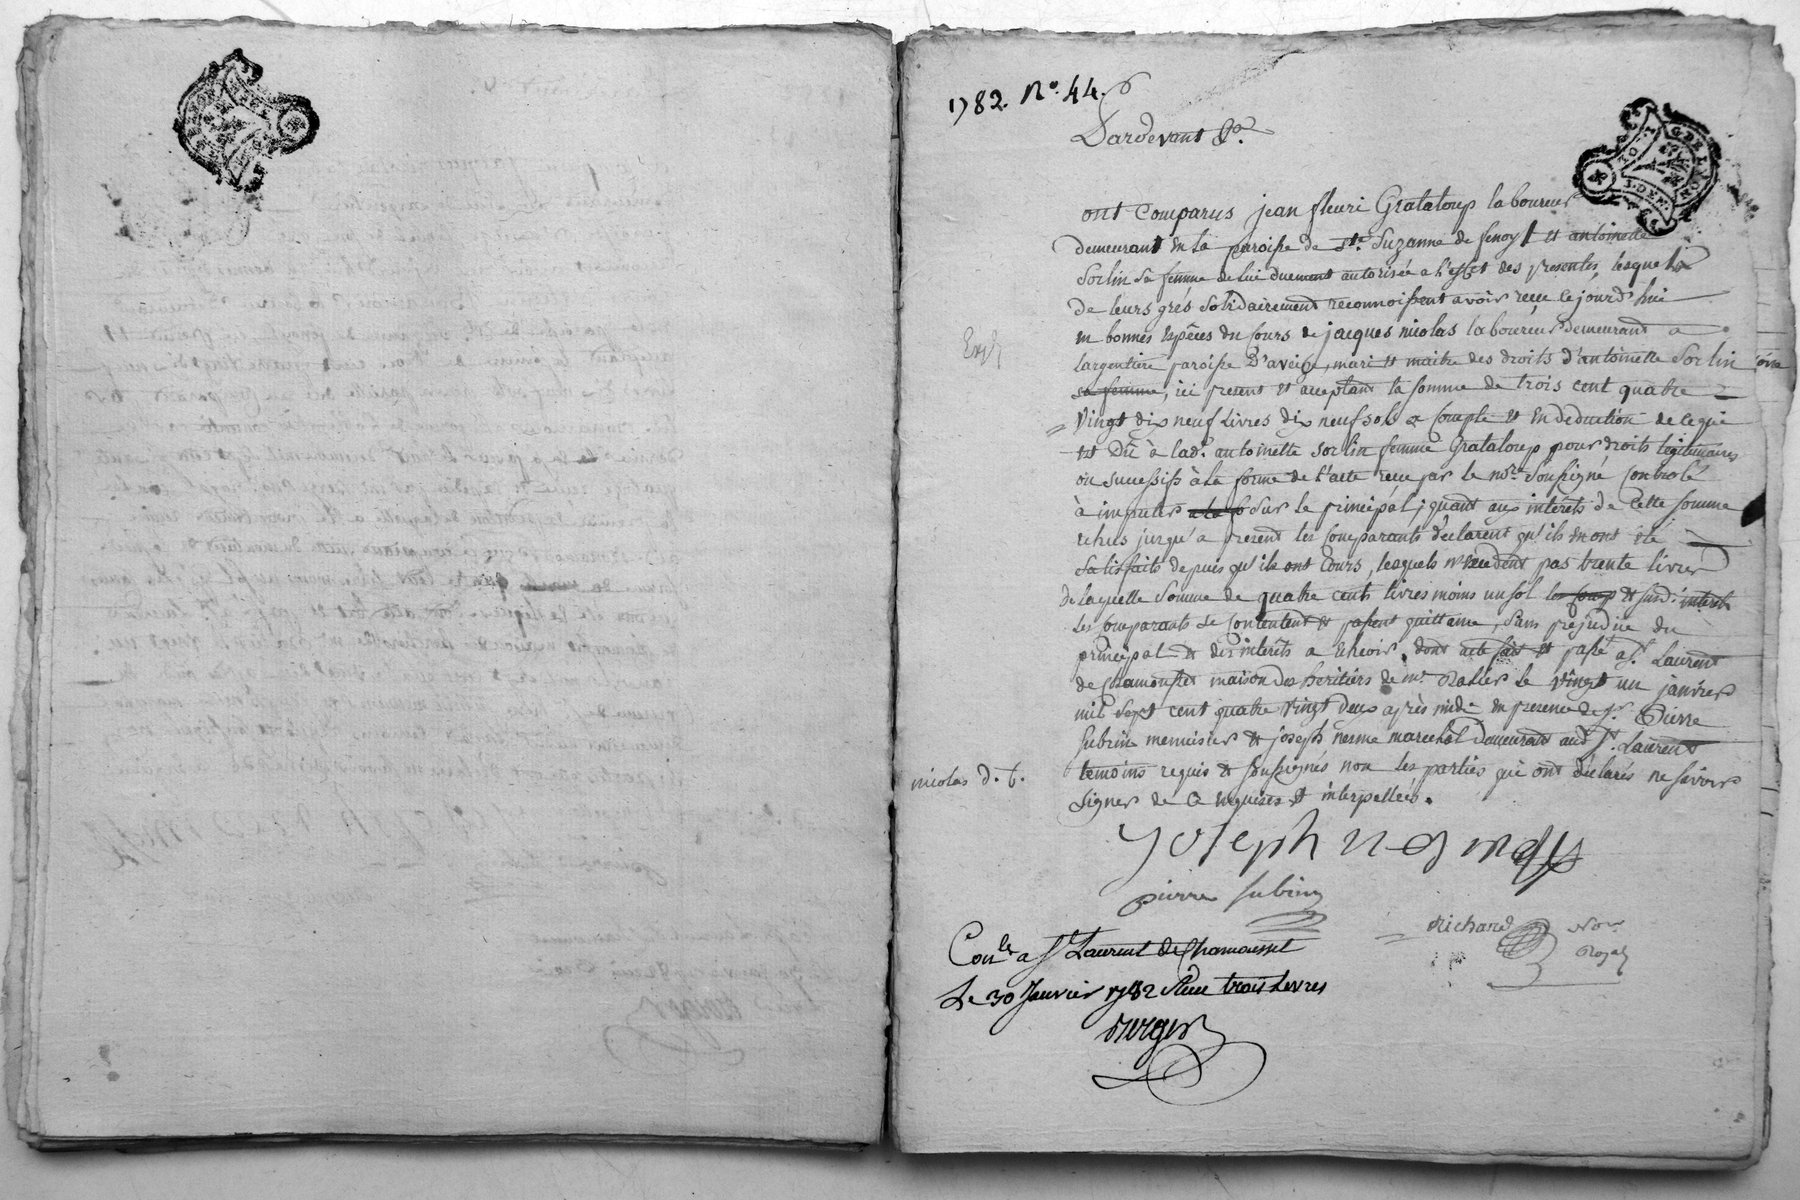 1782. No. 44.
Pardevant &a.
ont Comparus jean fleuri Grataloup laboureur
demeurant en la paroisse de Ste. Suzanne de fenoyl et antoinette
Sorlin sa femme de lui duement autorisée a l'effet des presentes, lesquels
de leurs grés solidairement reconnoissent avoir reçu cejourd'hui
en bonnes espèces du Cours de jacques nicolas laboureur demeurant a
largentiere paroisse D'aveize, mari et maitre des droits d'antoinette Sorlin
sa femme, ici present et acceptant la somme de trois cent quatre
Vingt dix neuf Livres dix neuf sols a Compte et en deduction de ce qui
est Dû à lad. antoinette sorlin femme Grataloup pour droits legitimaires
ou successifs à la forme de l'acte reçu par le nore. Soussigné Controlé
à imputer sur le principal; quant aux intérêts de Cette somme
echus jusqu'a present les Comparants declarent qu'ils en ont été
Satisfaits depuis qu'ils ont Cours, lesquels n'excedent pas trente livres
De laquelle Somme de quatre cents livres moins un sol et susd. interets
les Comparants se Contentent et passent quittance, sans prejudice du
principal et des interêts a echeoir. dont acte fait et passé a St. Laurent
de Chamousset maison des heritiers de mr. le vingt un janvier
mil sept cent quatre vingt deux après midi en presence de sr. Pierre
Subrin menuisier et joseph nesme marechal demeurants aud. St. Laurent
nicolas d. t.
temoins requis et soussignés non les parties qui ont déclarés ne savoir
signer de ce requises et interpellees.
joseph nesme
pierre subrin
Richard Nore
Royal
Conle a St Laurent de Chamousset
Le 30 Janvier 1782 Reçu trois Livres